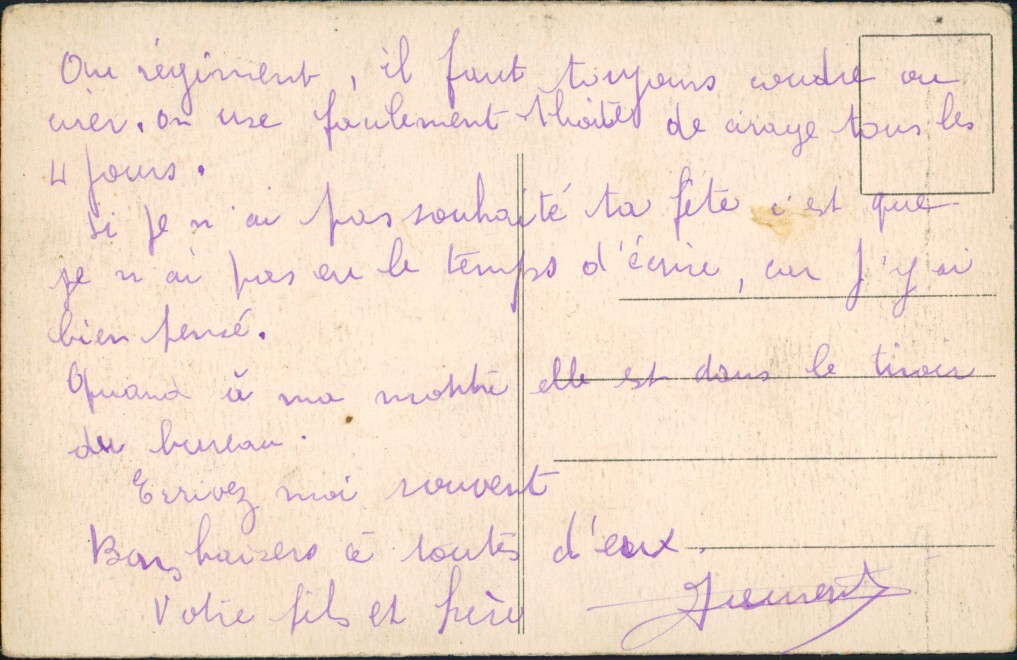 Au régiment, il faut toujours coudre ou
cirer. on use seulement 1 boite de cirage tous les
4 jours.
Si je n'ai pas souhaité ta fête c'est que
je n'ai pas eu le temps d'écrire, car j'y ai
bien pensé.
Quand à ma montre elle est dans le tiroir
du bureau.
Ecrivez moi souvent
Bons baisers à toutes d'eux.
Votre fils et frère